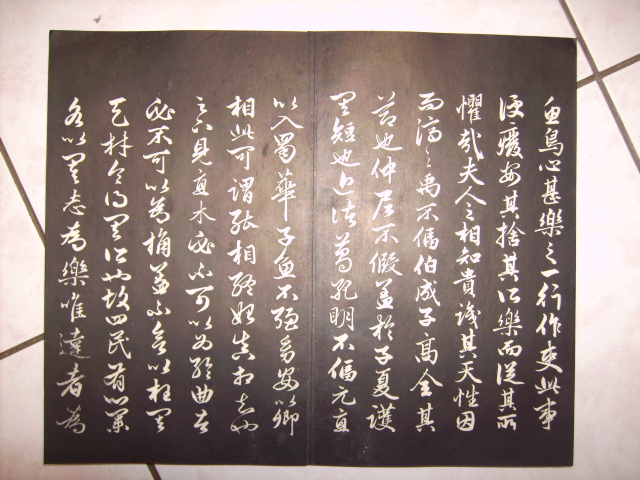 魚鳥心甚樂之一行作吏此事
便廢安能捨其所樂而從其所
懼哉夫人之相知貴識其天性因
而濟之禹不偪伯成子高全其
節也仲尼不假蓋於子夏護
其短也近諸葛孔明不偪元直
以入蜀華子魚不强幼安以卿
相此可謂能相終始真相知也
足下見直木必不可以為輪曲者
必不可以為桷蓋不欲以枉其
天才令得其所也故四民有業
各以其志為樂唯達者為